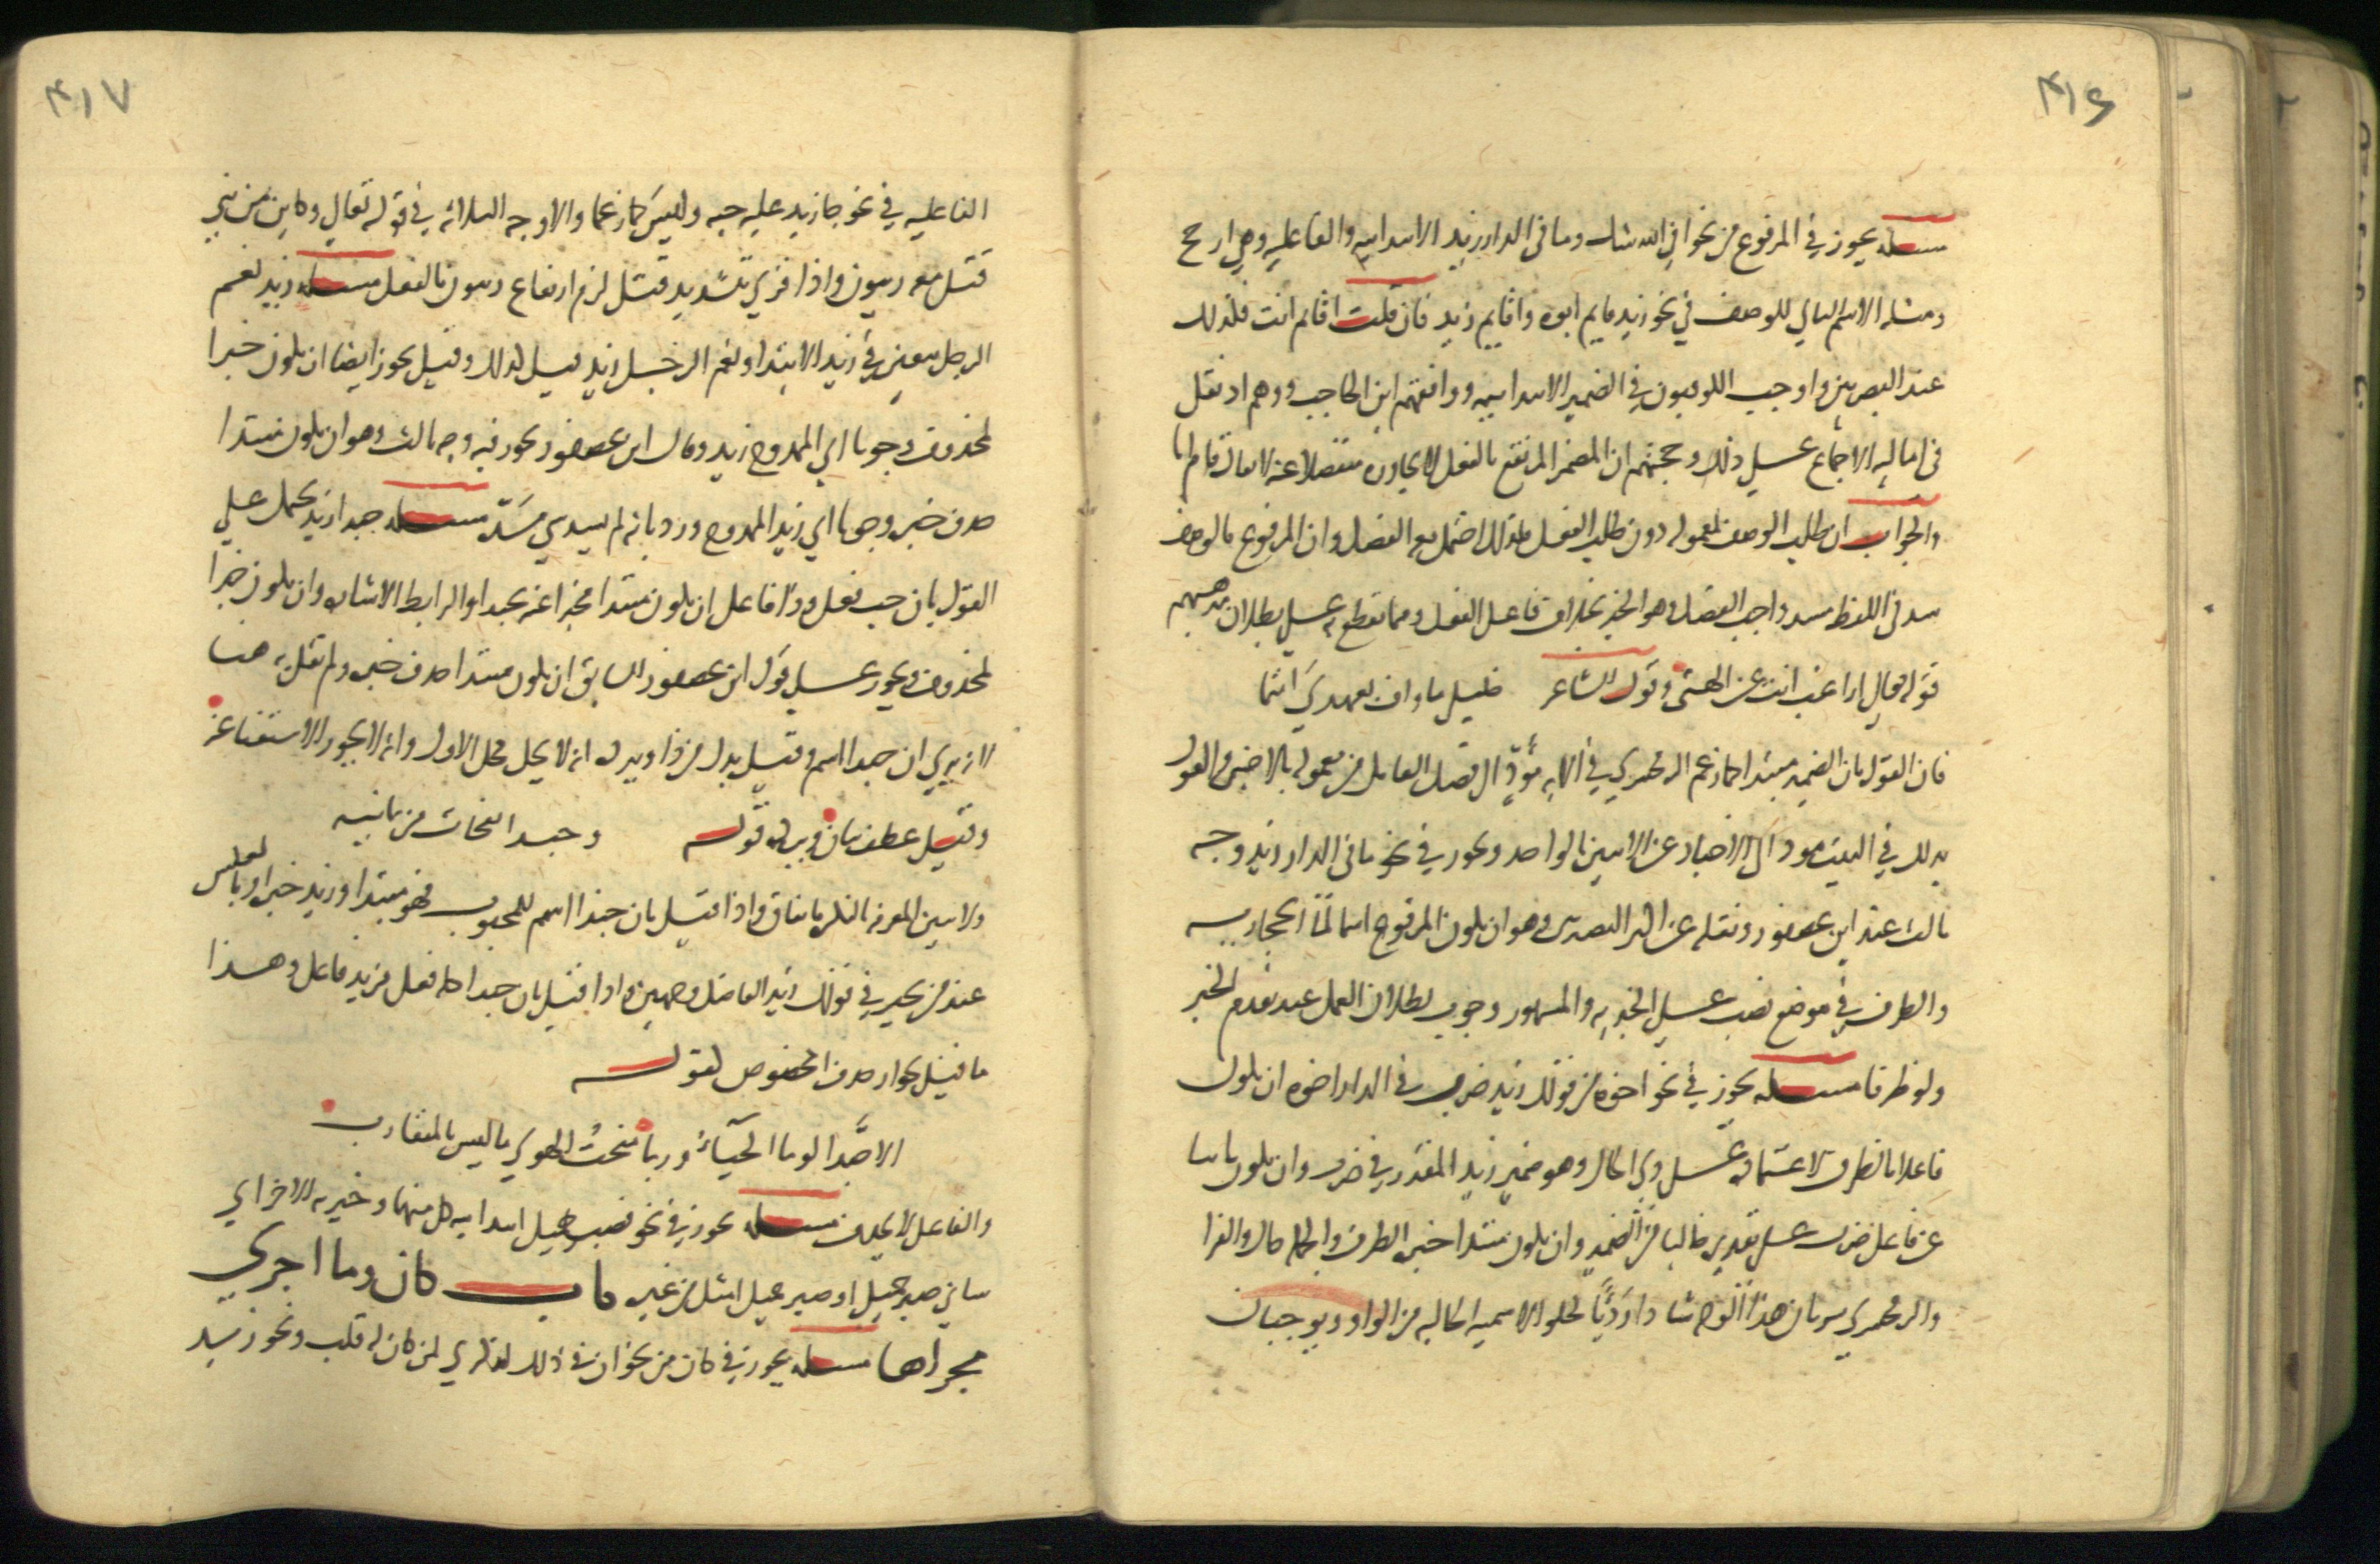 ۴۱۶
مسئله يجوز في المرفوع من نحو افي الله شك وما في الدار زيد الابتدائية والفاعلية وهي ارجح
ومثله الاسم التالي للوصف في نحو زيد قايم ابوه واقايم زيد فان قلت اقايم انت فكذلك
عند البصريين واوجب الكوفيون في الضمير الابتدائية ووافقهم ابن الحاجب ووهم اذ نقل
في اماليه الاجماع على ذلك وحجتهم ان المضمر المرتفع بالفعل لا يجاوره منفصلا عنه لا يقال قام انا
والجواب ان طلب الوصف لمعموله دون طلب الفعل فلذلك احتمل مع الفصل وان المرفوع بالوصف
سد في اللفظ مسد واجب الفصل وهو الخبر بخلاف فاعل الفعل ومما يقطع به على بطلان مذهبهم
قوله تعالى اراغب انت عن الهتى وقول الشاعر خليلي ما واف بعهدي انتما
فان القول بان الضمير مبتدا كما زعم الزمخشري في الآية مؤد الى فصل العامل من معموله بالاجنبي والقول
بذلك في البيت مود الى الاخبار عن الاثنين بالواحد ويجوز في نحو ما في الدار زيد وجه
ثالث عند ابن عصفور ونقله عن اكثر البصريين وهو ان يكون المرفوع اسما لما الحجازيه
والظرف في موضع نصب على الخبرية والمشهور وجوب بطلان العمل عند تقدم الخبر
ولو ظرفا مسئله يجوز في نحو اخوه من قولك زيد ضرب في الدار اخوه ان يكون
فاعلا بالظرف لاعتماده على ذي الحال وهو ضمير زيد المقدر في ضرب وان يكون نايبا
عن فاعل ضرب على تقديره خاليا من الضمير وان يكون مبتدا خبره الظرف والجملة حال والفرا
والزمخشري يريان هذا الوجه شاذا رديا لخلو الاسمية الحالية من الواو ويوجبان
۴۱۷
الفاعليه في نحو جا زيد عليه جبه وليس كما زعما والاوجه الثلاثة في قوله تعالى وكاين من نبي
قتل معه ربيون واذا قري بتشديد قتل لزم ارتفاع ربيون بالفعل مسئله زيد نعم
الرجل يتعين في زيد الابتدا ونعم الرجل زيد قيل كذلك وقيل يجوز ايضا ان يكون خبرا
لمحذوف وجوبا اي الممدوح زيد وقال ابن عصفور يجوز فيه وجه ثالث وهو ان يكون مبتدا
حذف خبره وجوبا اي زيد الممدوح ورد بانه لم يسد شي مسده مسئله حبذا زيد يحمل على
القول بان حب فعل وذا فاعل ان يكون مبتدا مخبرا عنه بحبذا والرابط الاشارة وان يكون خبرا
لمحذوف ويجوز على قول ابن عصفور السابق ان يكون مبتدا حذف خبره ولم يقل به هنا
لانه يري ان حبذا اسم وقيل بدل من ذا ويرده انه لا يحل محل الاول وانه لا يجوز الاستغنا عنه
وقيل عطف بيان ويرده قوله وحبذا نفحات من يمانية
ولا تبين المعرفة بالنكرة باتفاق واذا قيل بان حبذا اسم للمحبوب فهو مبتدا وزيد خبر او بالعكس
عند من يجيز في قولك زيد الفاضل وجهين واذا قيل بان حبذا كله فعل فزيد فاعل وهذا
ما قيل بجواز حذف المخصوص كقوله
الا حبذا لوما الحيآ وربما منحت الهوي ما ليس بالمتقارب
والفاعل لا يحذف مسئله يجوز في نحو فصبر جميل ابتدائية كل منهما وخبرية الاخر اي
شاني صبر جميل او صبر جميل امثل من غيره باب كان وما اجري
مجراها مسئله يجوز في كان من نحو ان في ذلك لذكري لمن كان له قلب ونحو زيد